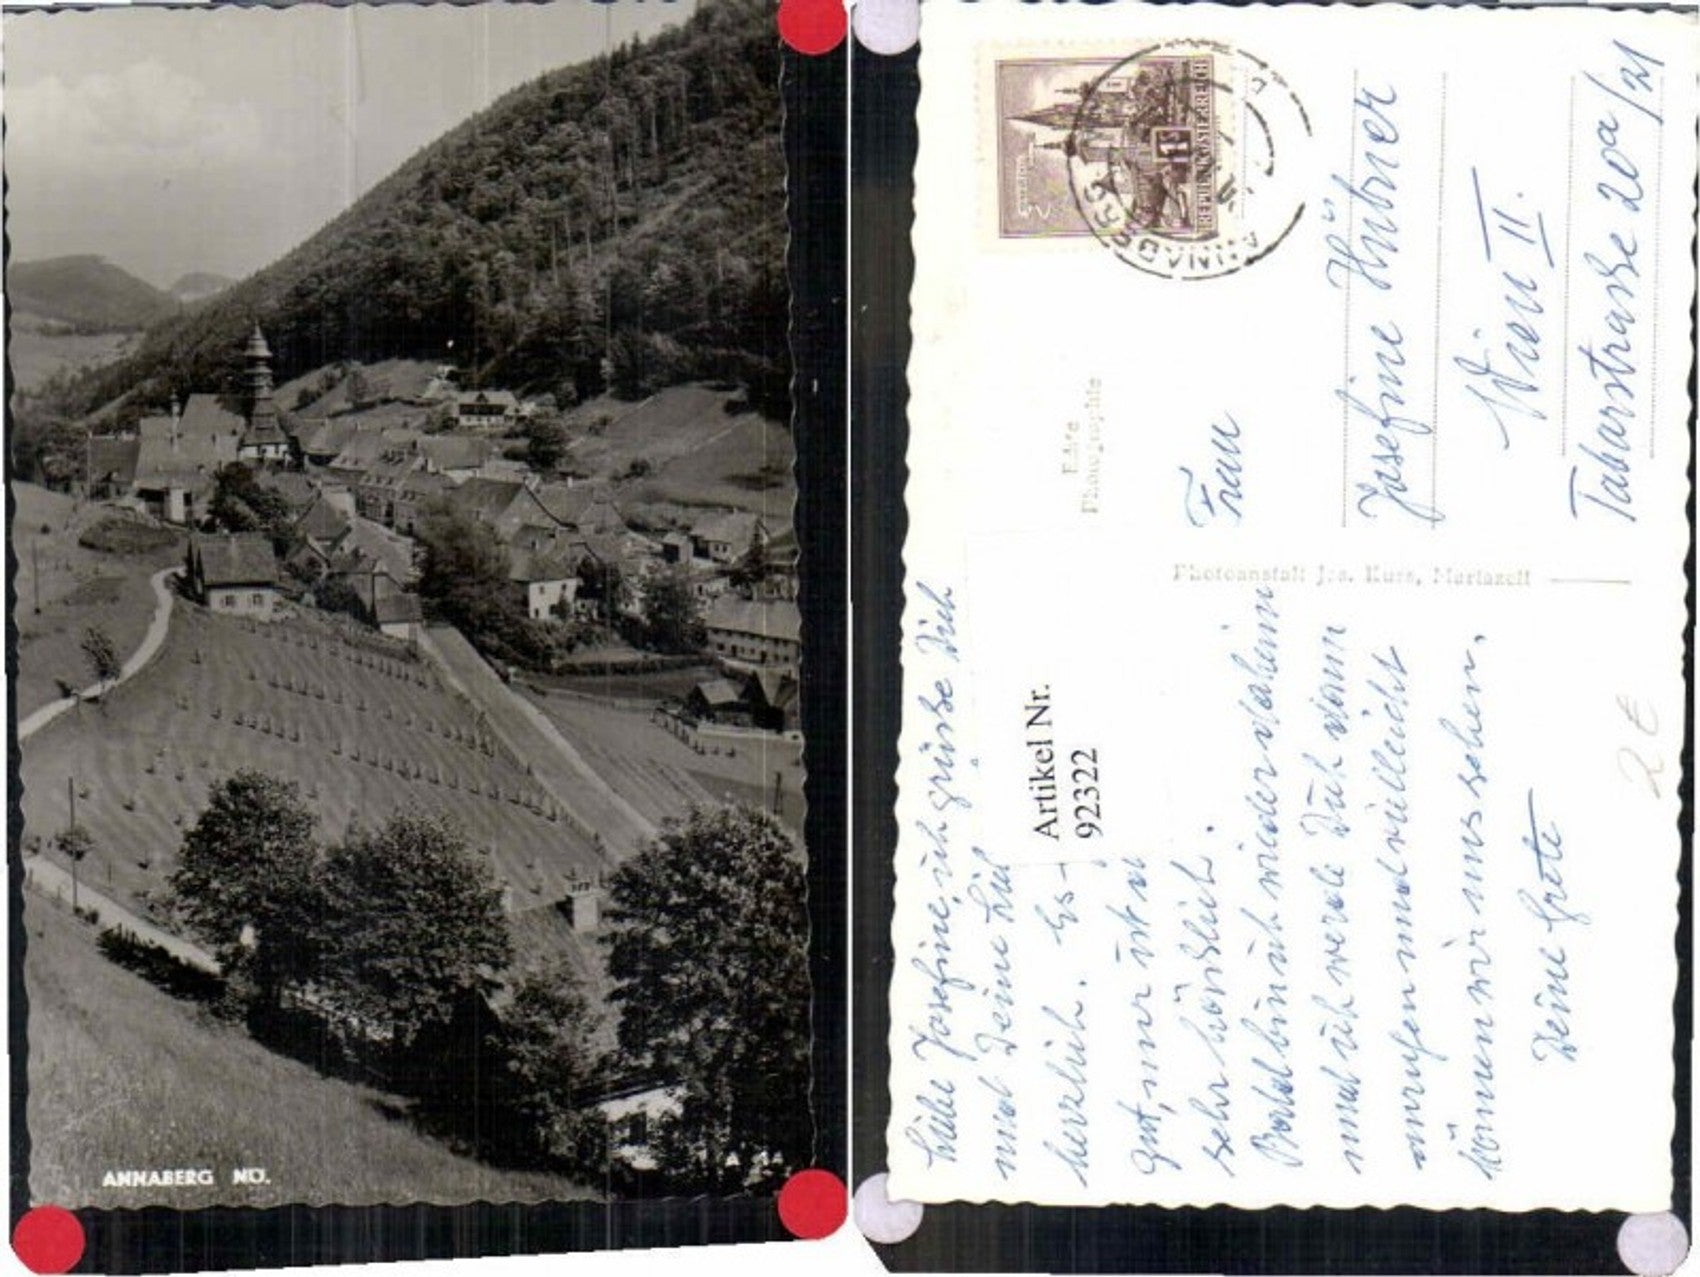 ANNABERG NÖ.
1S
REPUBLIK ÖSTERREICH
ANNABERG
Echte
Photographie
Photoanstalt Jos. Kuss, Mariazell
Frau
Josefine Hübner
Wien II.
Taborstraße 20a/21
Artikel Nr.
92322
Liebe Josefine, ich grüße Dich
und Deine
herzlich. Es
gut, nur ist es
sehr
Bald bin ich wieder daheim
und ich werde Dich dann
anrufen und vielleicht
können wir uns sehen.
Deine Grete
2 €